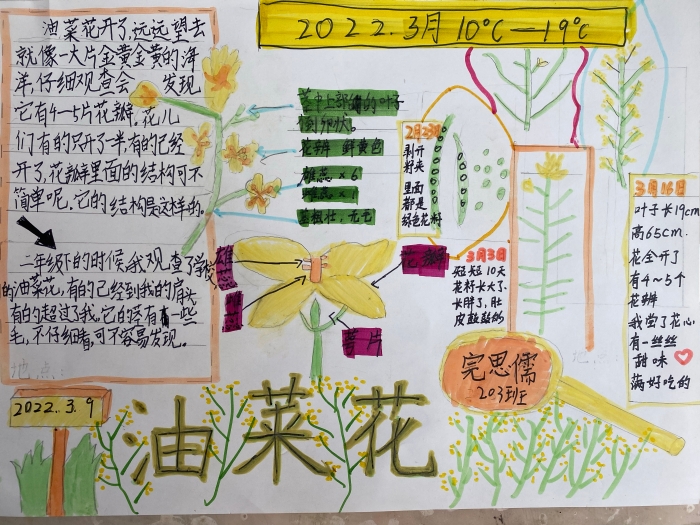 油菜花开了,远远望去
就像一大片金黄金黄的海
洋,仔细观查会 发现
它有4-5片花瓣,花儿
们有的只开了一半有的已经
开了,花瓣里面的结构可不
简单呢,它的结构是这样的。
二年级下的时候,我观查了学校
的油菜花,有的已经到我的肩头
有的超过了我,它的茎有一些
毛,不仔细看,可不容易发现。
地点:
2022.3.9
2022.3月10°C—19°C
茎中上部的叶子
花瓣 鲜黄色
雄蕊×6
雌蕊×1
茎粗壮,无毛
雄蕊
雌蕊
花瓣
萼片
2月23日
剥开
籽夹
里面
都是
绿色花籽
3月3日
短短10天
花籽长大了.
长胖了,肚
皮鼓鼓的
3月16日
叶子长19cm
高65cm.
花全开了
有4~5个
花瓣
我尝了花心
有一丝丝
甜味
满好吃的
地点:
完思儒
203班
油菜花